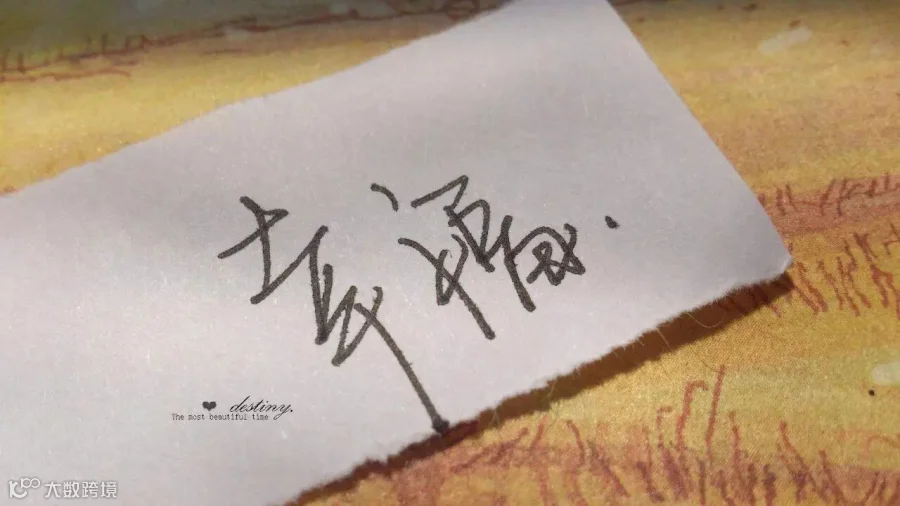 幸福.
❤ destiny.
The most beautiful time
大数跨境